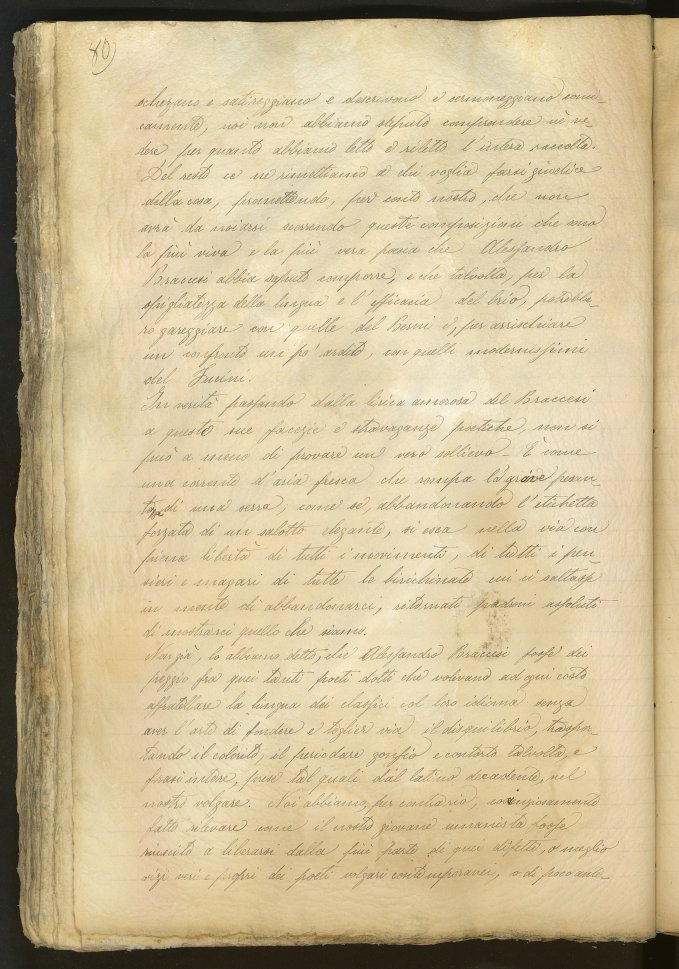 80)
scherzano e satireggiano e descrivono e sermoneggiano comi-
camente, noi non abbiamo saputo comprendere nè ve
dere per quanto abbiamo letto e riletto l'intera raccolta.
Del resto ce ne rimettiamo a chi voglia farsi giudice
della cosa, promettendo, per conto nostro, che non
avrà da noiarsi scorrendo queste composizioni che sono
la più viva e la più vera poesia che Alessandro
Braccesi abbia saputo comporre, e che talvolta, per la
spigliatezza della lingua e l'efficacia del brio, potrebbe-
ro gareggiare con quelle del Berni e, per arrischiare
un confronto un po' ardito, con quelli modernissimi
del Fucini.
In verità passando dalla lirica amorosa del Braccesi
a queste sue facezie e stravaganze poetiche, non si
può a meno di provare un vero sollievo - È come
una corrente d'aria fresca che rompa la grave pesan-
tezza di una serra; come se, abbandonando l'etichetta
forzata di un salotto elegante, si esca nella via con
piena libertà di tutti i movimenti, di tutti i pen
sieri e magari di tutte le birichinate cui ci saltasse
in mente di abbandonarci, ritornati padroni assoluti
di mostrarci quello che siamo.
Non già, lo abbiamo detto, che Alessandro Braccesi fosse dei
peggio fra quei tanti poeti dotti che volevano ad ogni costo
affratellare la lingua dei classici col loro idioma senza
aver l'arte di fondere e toglier via il disequilibrio, traspor-
tando il colorito, il periodare gonfio e contorto talvolta, e
frasi intere, prese tal quali dal latino decadente, nel
nostro volgare. Noi abbiamo, per contrario, coscienziosamente
fatto rilevare come il nostro giovane umanista fosse
riuscito a liberarsi dalla più parte di quei difetti, o meglio
vizi veri e propri dei poeti volgari contemporanei, o di poco ante-